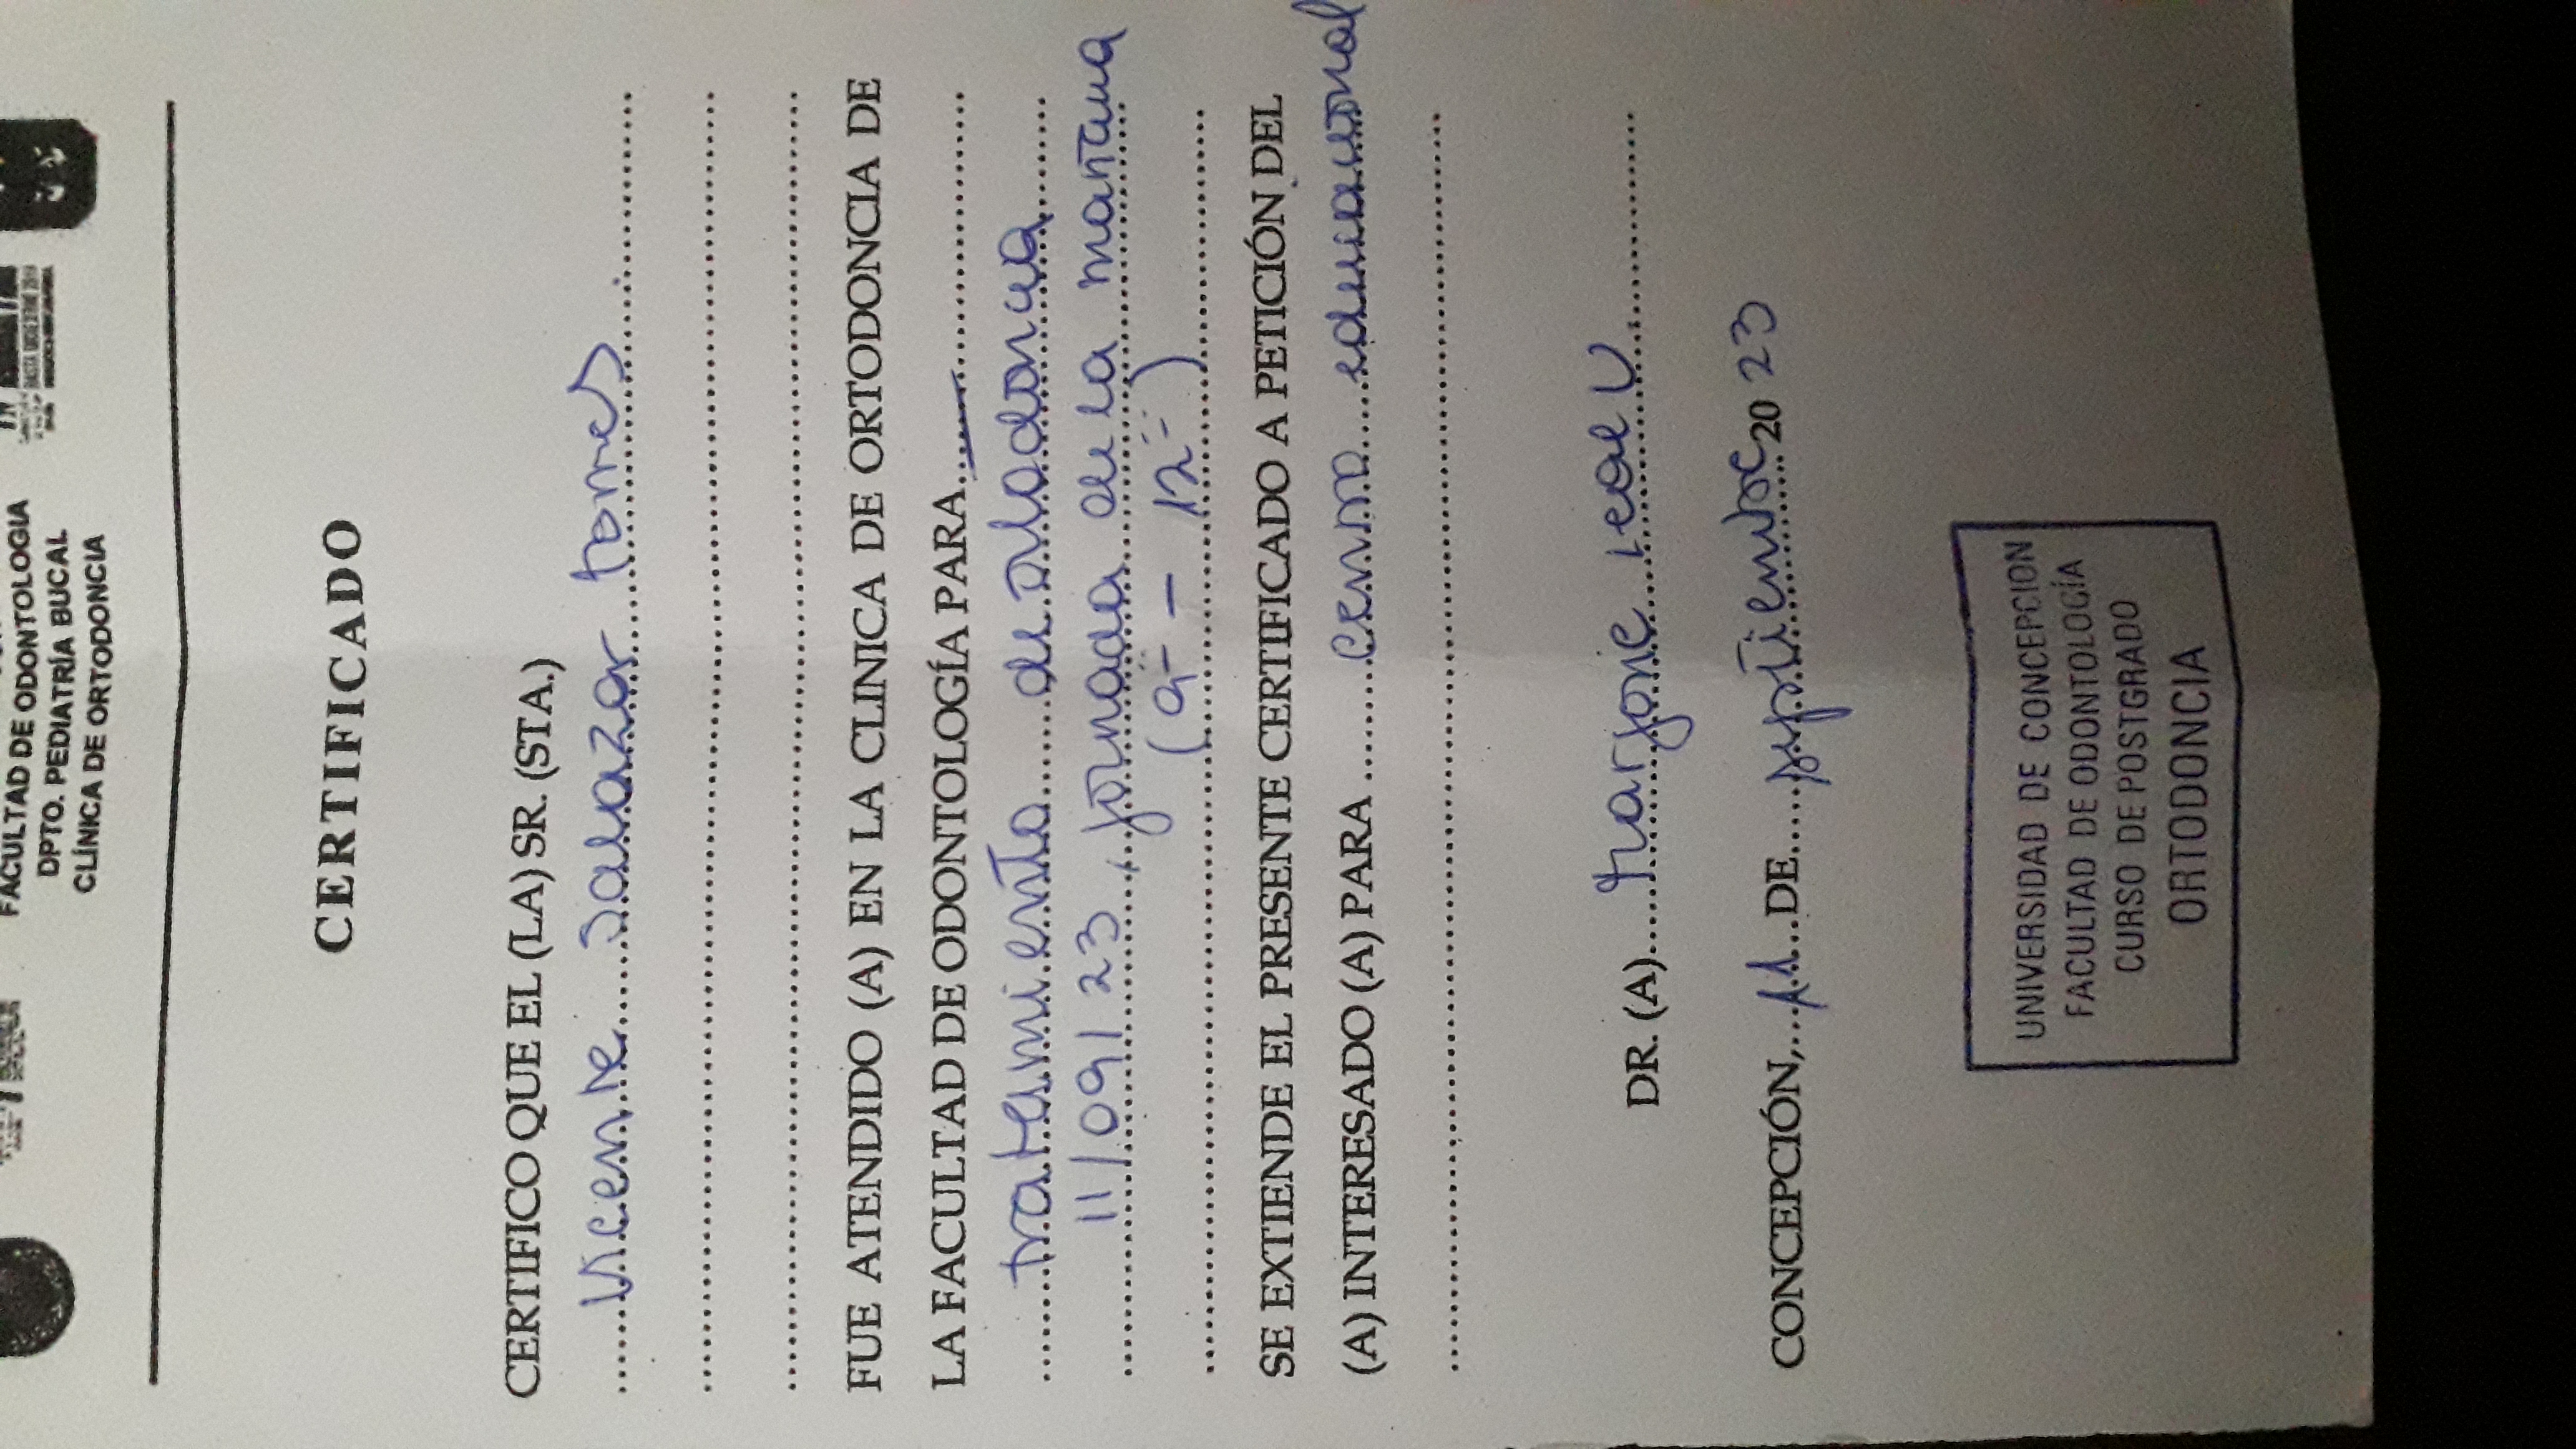 FACULTAD DE ODONTOLOGIA
DPTO. PEDIATRÍA BUCAL
CLÍNICA DE ORTODONCIA
CERTIFICADO
CERTIFICO QUE EL (LA) SR. (STA.)
Vicente Salazar Torres
FUE ATENDIDO (A) EN LA CLINICA DE ORTODONCIA DE
LA FACULTAD DE ODONTOLOGÍA PARA
tratamiento de ortodoncia
11/09/23, jornada de la mañana
(9 - 12)
SE EXTIENDE EL PRESENTE CERTIFICADO A PETICIÓN DEL
(A) INTERESADO (A) PARA centro educacional
DR. (A) Marjorie Leal U
CONCEPCIÓN, 11 DE septiembre 20 23
UNIVERSIDAD DE CONCEPCION
FACULTAD DE ODONTOLOGÍA
CURSO DE POSTGRADO
ORTODONCIA